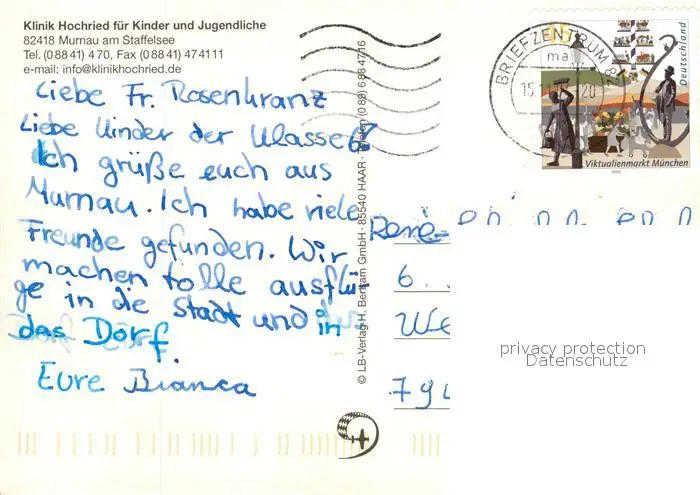 Klinik Hochried für Kinder und Jugendliche
82418 Murnau am Staffelsee
Tel. (0 88 41) 4 70, Fax (0 88 41) 47 41 11
e-mail: info@klinikhochried.de
Liebe Fr. Rosenkranz
Liebe Kinder der Klasse
Ich grüße euch aus
Murnau. Ich habe viele
Freunde gefunden. Wir
machen tolle ausflü
ge in die Stadt und in
das Dorf.
Eure Bianca
© LB-Verlag H. Bertram GmbH · 85540 HAAR · Telefon (0 89) 6 88 47 16
BRIEFZENTRUM
Deutschland
Viktualienmarkt München
René-
6
We
794
privacy protection
Datenschutz